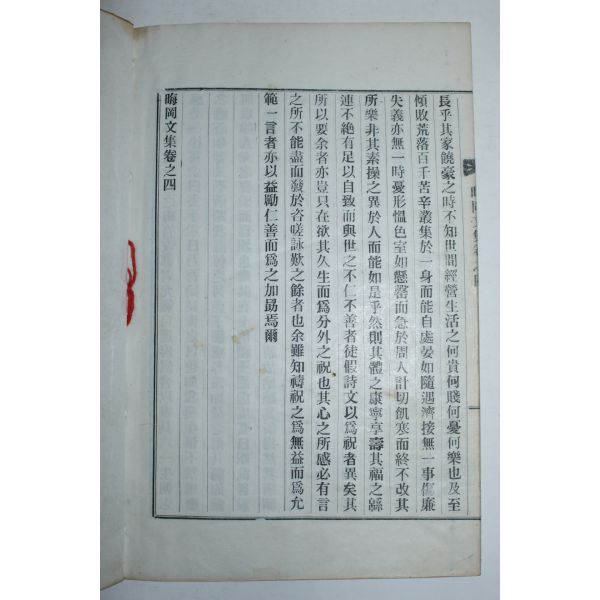 長乎其家饒豪之時不知世間經營生活之何貴何賤何憂何樂也及至
傾敗荒落百千苦辛叢集於一身而能自處晏如隨遇濟接無一事傷廉
失義亦無一時憂形慍色室如懸罄而急於周人計切飢寒而終不改其
所樂非其素操之異於人而能如是乎然則其體之康寧享壽其福之緜
連不絕有足以自致而與世之不仁不善者徒假詩文以爲祝者異矣其
所以要余者亦豈只在欲其久生而爲分外之祝也其心之所感必有言
之所不能盡而發於咨嗟詠歎之餘者也余雖知禱祝之爲無益而爲允
範一言者亦以益勵仁善而爲之加勗焉爾
晦岡文集卷之四